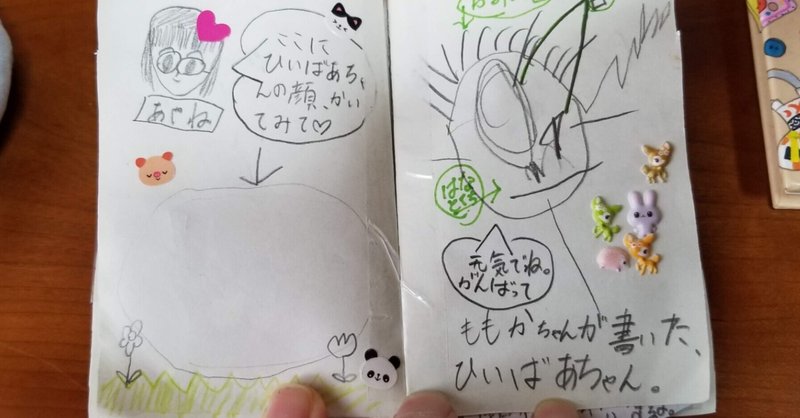 ここに
ひいばあちゃ
んの顔、かい
てみて♡
あやね
はな
とくち
元気でね。
がんばって
ももかちゃんが書いた、
ひいばあちゃん。